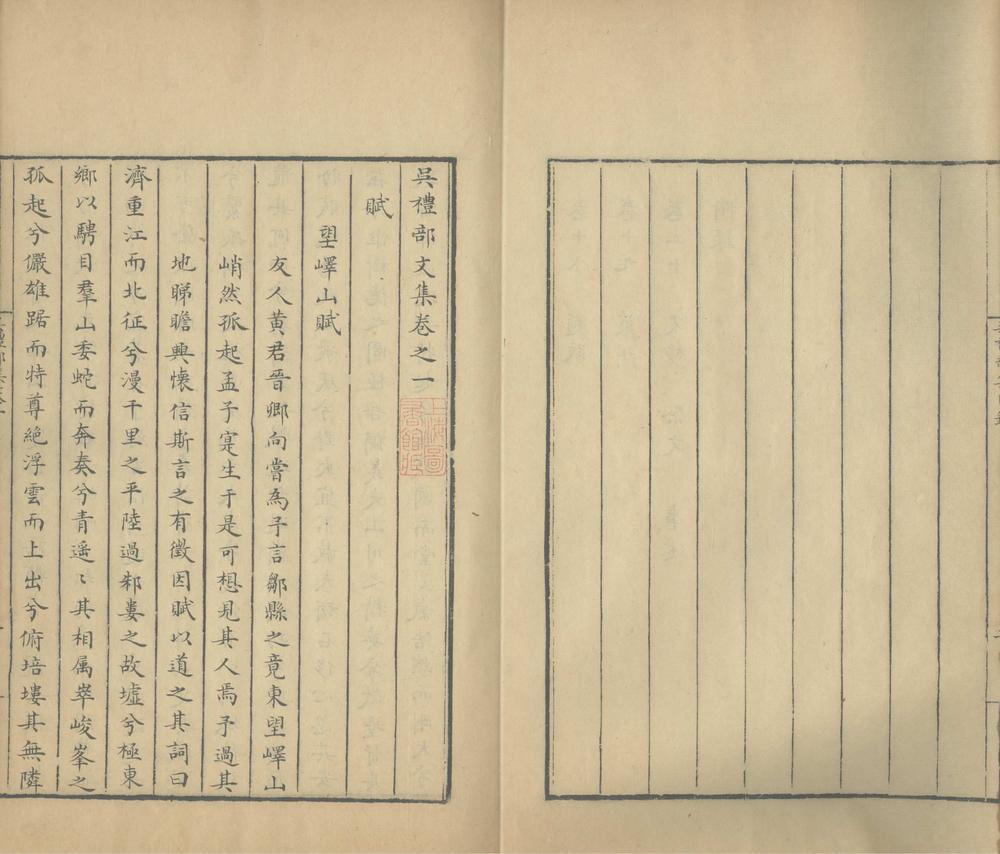 吳禮部文集卷之一
賦
望嶧山賦
友人黃君晉卿向嘗為予言鄒縣之竟東望嶧山
峭然孤起孟子寔生于是可想見其人焉予過其
地睇瞻興懷信斯言之有徵因賦以道之其詞曰
濟重江而北征兮漫千里之平陸過邾婁之故墟兮極東
鄉以騁目羣山委蛇而奔奏兮青遥〻其相属崒峻峯之
孤起兮儼雄踞而特尊絶浮雲而上出兮俯培塿其無隣
上海圖書館藏